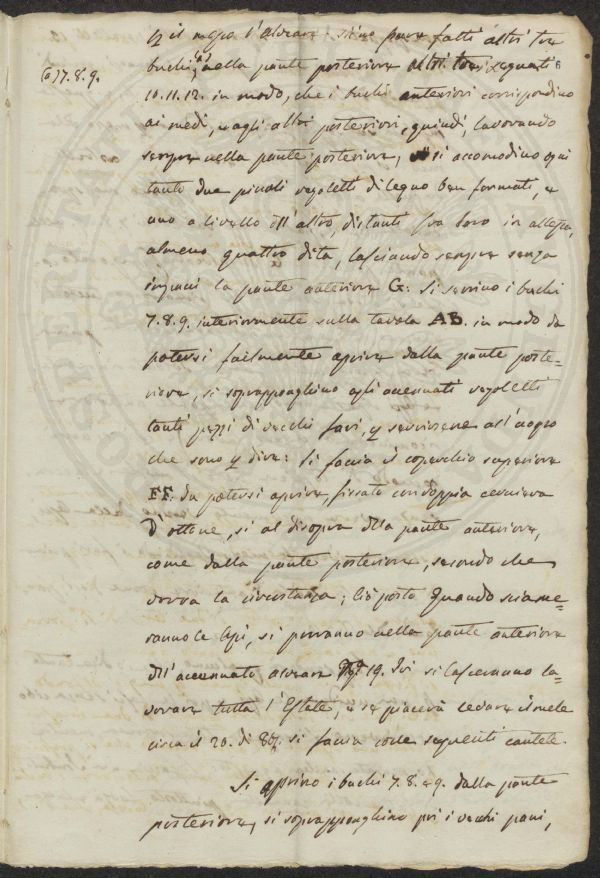 il mezzo l'alveare: siino pure fatti altri tre
buchi (a), nella parte posteriore altri tre segnati
(a) 7. 8. 9.
10. 11. 12. in modo, che i buchi anteriori corrispondino
ai medi, e agli altri posteriori, quindi, lavorando
sempre nella parte posteriore, si accomodino ogni
tanto due piccoli regoletti di legno ben formati, e
uno a livello dell'altro, distanti fra loro in
almeno quattro dita, lasciando sempre senza
la parte anteriore G: Si serrino i buchi
7. 8. 9. interiormente sulla tavola AB. in modo da
potersi facilmente aprire dalla parte poste=
riore, si soprapponghino agli accennati regoletti
tanti pezzi di vecchi favi, servirsene all'uopo
che sono dire: Si faccia il coperchio superiore
FF. da potersi aprire, fissato con doppia cerniera
d'ottone, si al disopra della parte anteriore,
come dalla parte posteriore, secondo che
vorrà la circostanza; Ciò posto Quando sciame=
ranno le Api, si porranno nella parte anteriore
dell'accennato alveare 19. Ivi si lasceranno la=
vorare tutta l'Estate, e se piacerà levare il mele
circa il 20. di si faccia colle seguenti cautele.
Si aprino i buchi 7. 8. e 9. dalla parte
posteriore, si soprapponghino poi i vecchi pani,